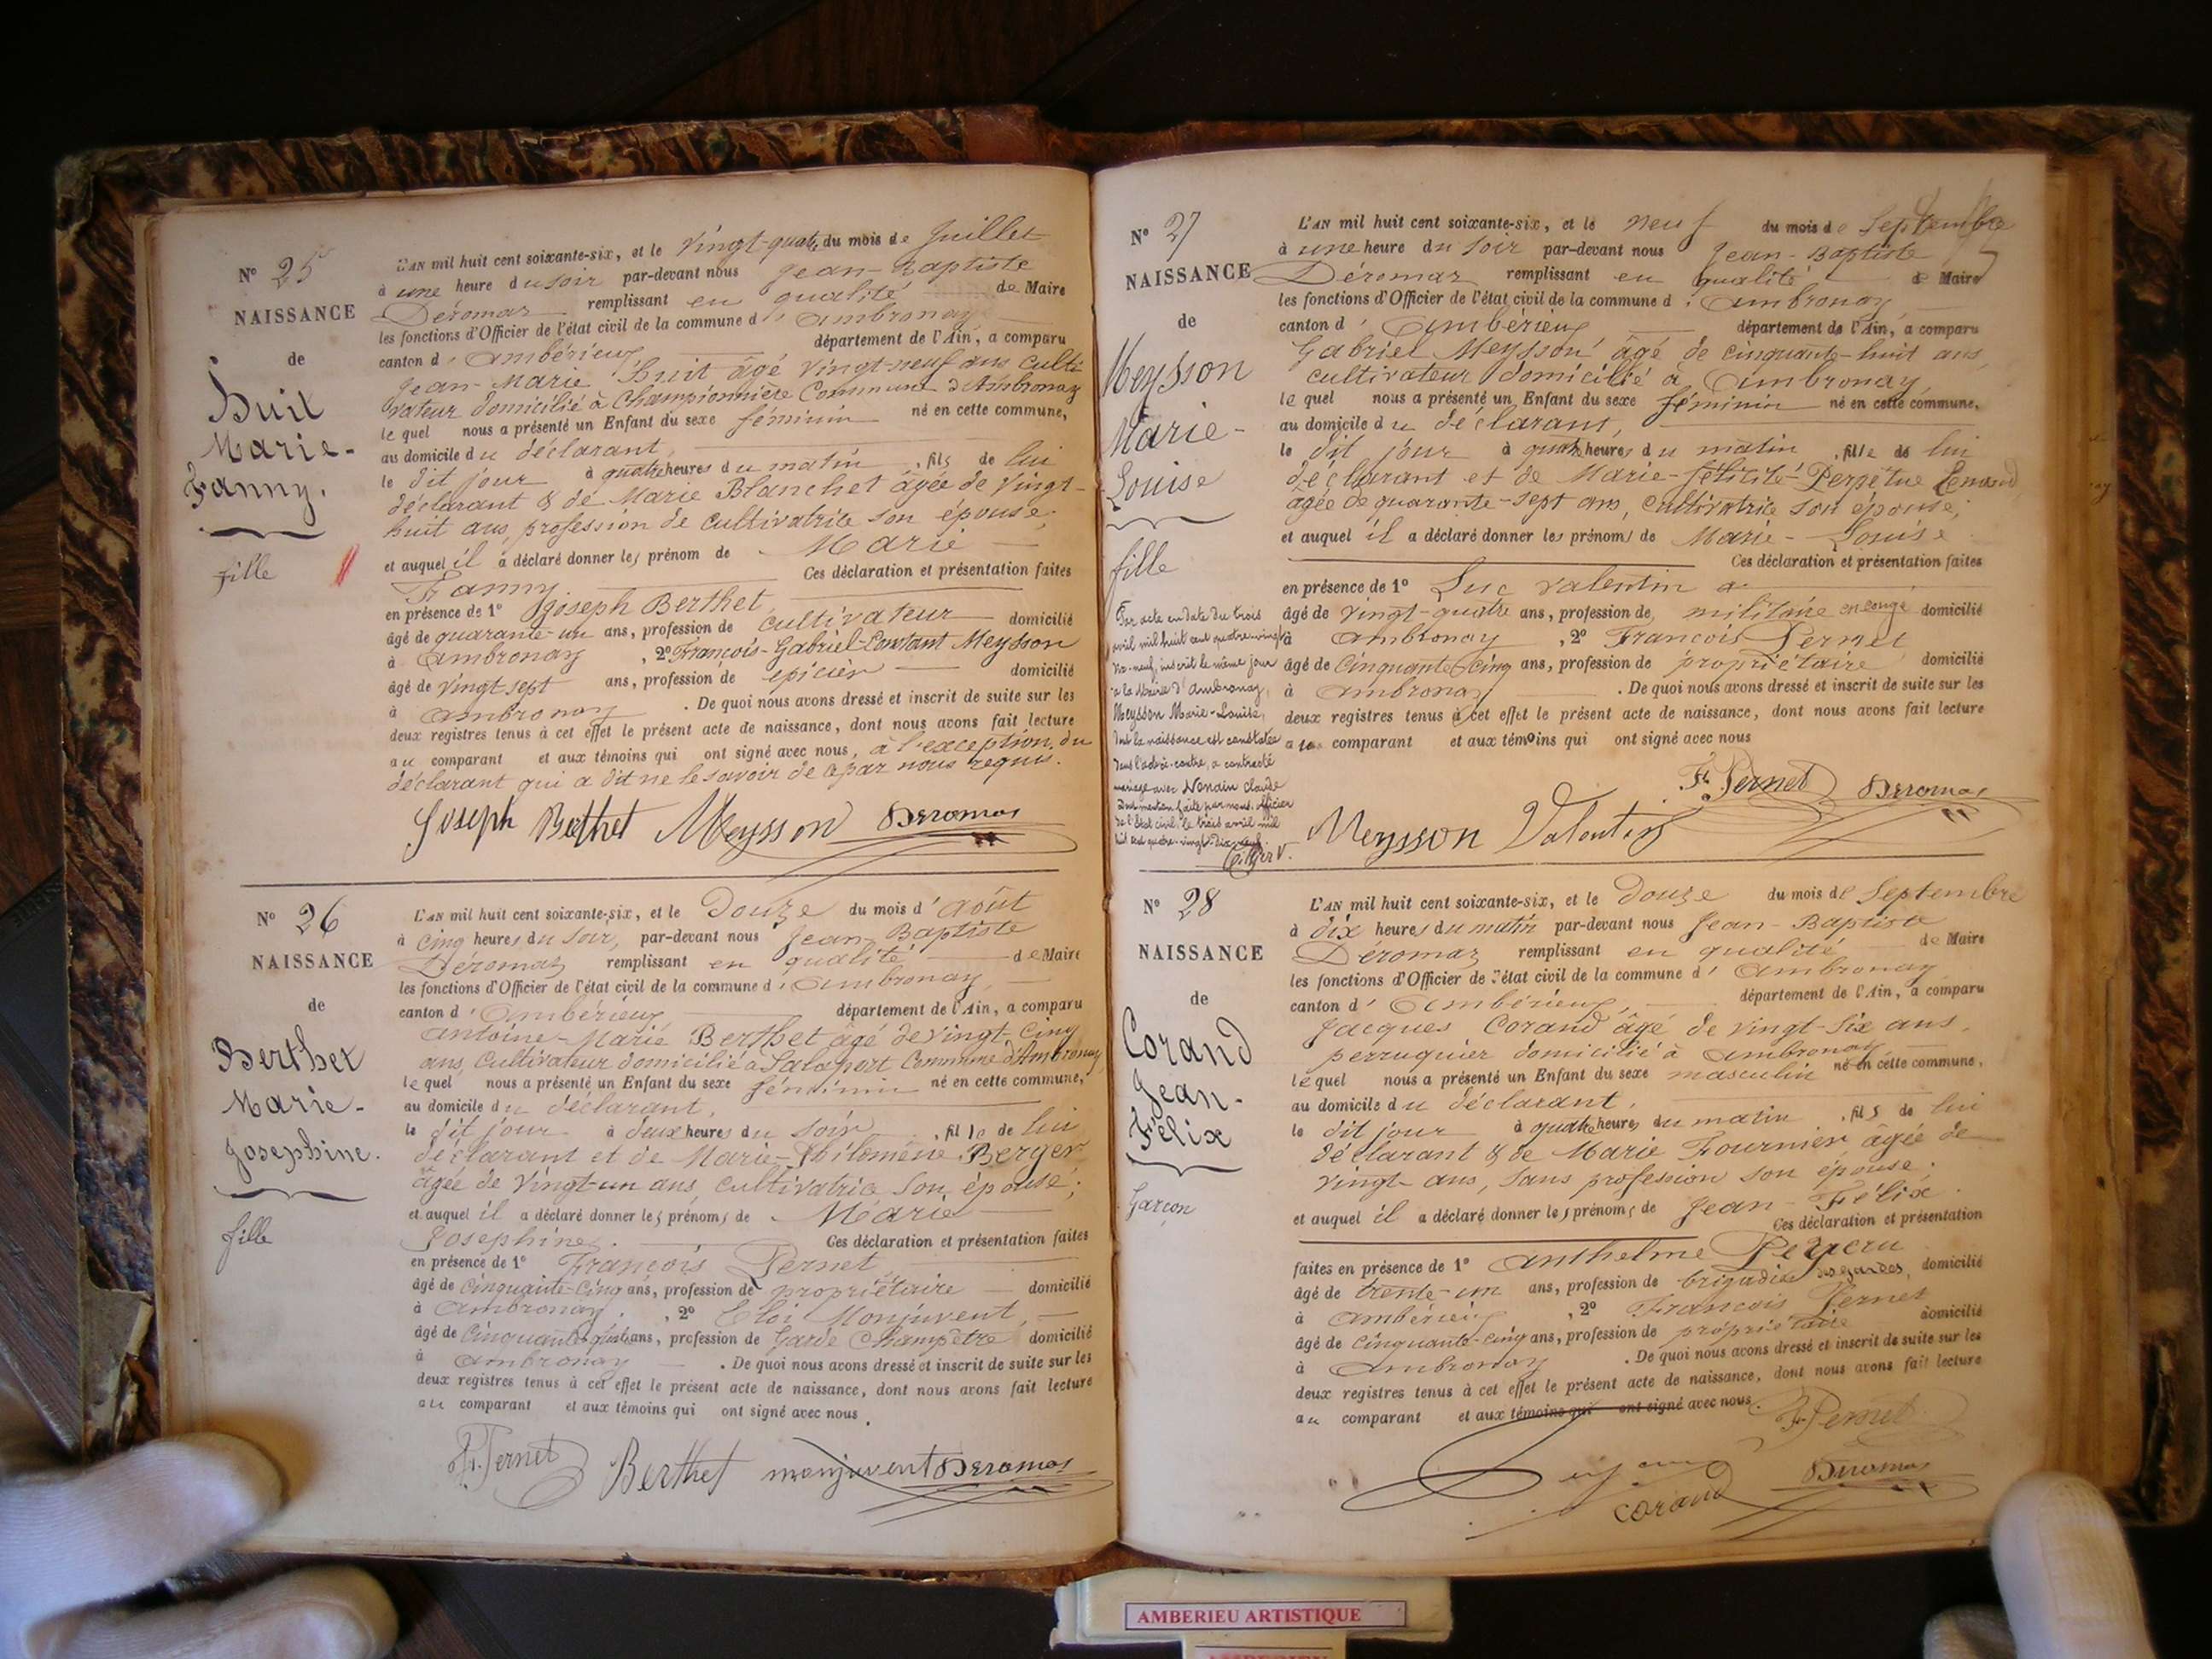 N° 25
NAISSANCE
de
Huit
Marie-
Fanny.
fille
L'AN mil huit cent soixante-six, et le vingt-quatre du mois de Juillet
à une heure du soir par-devant nous Jean-Baptiste
Déromas remplissant en qualité de Maire
les fonctions d'Officier de l'état civil de la commune d'Ambronay
canton d'Ambérieux département de l'Ain, a comparu
Jean-Marie Huit âgé vingt-neuf ans culti
vateur domicilié à Championnière Commune d'Ambronay
le quel nous a présenté un Enfant du sexe féminin né en cette commune,
au domicile du déclarant,
le dit jour à quatre heures du matin, fils de lui
déclarant & de Marie Blanchet âgée de vingt-
huit ans, profession de cultivatrice son épouse;
et auquel il a déclaré donner les prénom de Marie
Fanny. Ces déclaration et présentation faites
en présence de 1° Joseph Berthet
âgé de quarante-un ans, profession de cultivateur domicilié
à Ambronay, 2° François-Gabriel-Constant Meysson
âgé de vingt sept ans, profession de epicier domicilié
à Ambronay. De quoi nous avons dressé et inscrit de suite sur les
deux registres tenus à cet effet le présent acte de naissance, dont nous avons fait lecture
au comparant et aux témoins qui ont signé avec nous, à l'exception du
déclarant qui a dit ne le savoir de ce par nous requis.
Joseph Berthet Meysson Deromas
N° 26
NAISSANCE
de
Berthet
Marie-
Josephine.
fille
L'AN mil huit cent soixante-six, et le Douze du mois d'août
à cinq heures du soir, par-devant nous Jean-Baptiste
Déromas remplissant en qualité de Maire
les fonctions d'Officier de l'état civil de la commune d'Ambronay,
canton d'Ambérieux département de l'Ain, a comparu
Antoine-Marie Berthet âgé de vingt-cinq
ans, Cultivateur domicilié à Salaport Commune d'Ambronay,
le quel nous a présenté un Enfant du sexe féminin né en cette commune,
au domicile du déclarant,
le dit jour à deux heures du soir, fille de lui
déclarant et de Marie-Philomène Berger
âgée de vingt-un ans, cultivatrice son épouse;
et auquel il a déclaré donner les prénoms de Marie
Josephine. Ces déclaration et présentation faites
en présence de 1° François Pernet
âgé de cinquante-cinq ans, profession de propriétaire domicilié
à Ambronay, 2° Eloi Monjuvent,
âgé de cinquante-quatre ans, profession de Garde Champêtre domicilié
à Ambronay. De quoi nous avons dressé et inscrit de suite sur les
deux registres tenus à cet effet le présent acte de naissance, dont nous avons fait lecture
au comparant et aux témoins qui ont signé avec nous.
F. Pernet Berthet monjuvent Deromas
N° 27
NAISSANCE
de
Meysson
Marie-
Louise
fille
Par acte en date du trois
avril mil huit cent quatre-vingt
dix-neuf, inscrit le même jour
à la Mairie d'Ambronay,
Meysson Marie-Louise,
dont la naissance est constatée
dans l'acte ci-contre, a contracté
mariage avec Nondin Claude
Dont mention faite par nous, officier
de l'Etat civil, le trois avril mil
huit cent quatre-vingt-dix-neuf.
L'AN mil huit cent soixante-six, et le neuf du mois de Septembre
à une heure du soir par-devant nous Jean-Baptiste
Déromas remplissant en qualité de Maire
les fonctions d'Officier de l'état civil de la commune d'Ambronay
canton d'Ambérieux département de l'Ain, a comparu
Gabriel Meysson âgé de cinquante-huit ans,
cultivateur domicilié à Ambronay,
le quel nous a présenté un Enfant du sexe féminin né en cette commune,
au domicile du déclarant,
le dit jour à quatre heures du matin, fille de lui
déclarant et de Marie-Félicité-Perpétue
âgée de quarante-sept ans, cultivatrice son épouse;
et auquel il a déclaré donner les prénoms de Marie-Louise
Ces déclaration et présentation faites
en présence de 1° Luc Valentin
âgé de vingt-quatre ans, profession de militaire en congé domicilié
à Ambronay, 2° François Pernet
âgé de cinquante-cinq ans, profession de propriétaire domicilié
à Ambronay. De quoi nous avons dressé et inscrit de suite sur les
deux registres tenus à cet effet le présent acte de naissance, dont nous avons fait lecture
comparant et aux témoins qui ont signé avec nous
F. Pernet Deromas
Meysson Valentin
N° 28
NAISSANCE
de
Corand
Jean-
Félix
Garçon
L'AN mil huit cent soixante-six, et le Douze du mois de Septembre
à dix heures du matin par-devant nous Jean-Baptiste
Déromas remplissant en qualité de Maire
les fonctions d'Officier de l'état civil de la commune d'Ambronay
canton d'Ambérieux, département de l'Ain, a comparu
Jacques Corand âgé de vingt-six ans,
perruquier domicilié à Ambronay
le quel nous a présenté un Enfant du sexe masculin né en cette commune,
au domicile du déclarant,
le dit jour à quatre heures du matin, fils de lui
déclarant & de Marie Fournier âgée de
vingt-ans, sans profession son épouse;
et auquel il a déclaré donner les prénoms de Jean-Félix.
Ces déclaration et présentation
faites en présence de 1° Anthelme
âgé de trente-un ans, profession de brigadier des gardes, domicilié
à Ambérieux, 2° François Pernet
âgé de cinquante-cinq ans, profession de propriétaire domicilié
à Ambronay. De quoi nous avons dressé et inscrit de suite sur les
deux registres tenus à cet effet le présent acte de naissance, dont nous avons fait lecture
au comparant et aux témoins qui ont signé avec nous.
F. Pernet
Deromas
Corand
AMBERIEU ARTISTIQUE